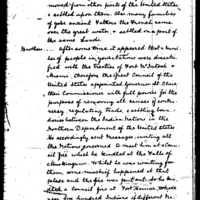 moved from other parts of the United States
& settled upon them. Also many families
of your ancient Fathers the French came
over the great water, & settled on a part of
the same lands.
Brothers... After some time it appeared that a number
of people in your nations were dissatisfied
with the treaties of Fort McIntosh &
Miami, therefore the Great Council of the
United States appointed governor St Clair
their Commissioner with full powers for the
purposes of removing all causes of controversy
regulating trade, & settling boundaries
between the Indian Nations in the
Northern Department & the United States
He accordingly sent messages, inviting all
the Nations concerned to meet him at a Council
fire which he kindled at the Falls of
Muskingum. Whilst he was waiting for
them, some mischief happened at that
place and the fire was put out: So he
kindled a Council fire at Fort Harmar, where
near six hundred Indians of different